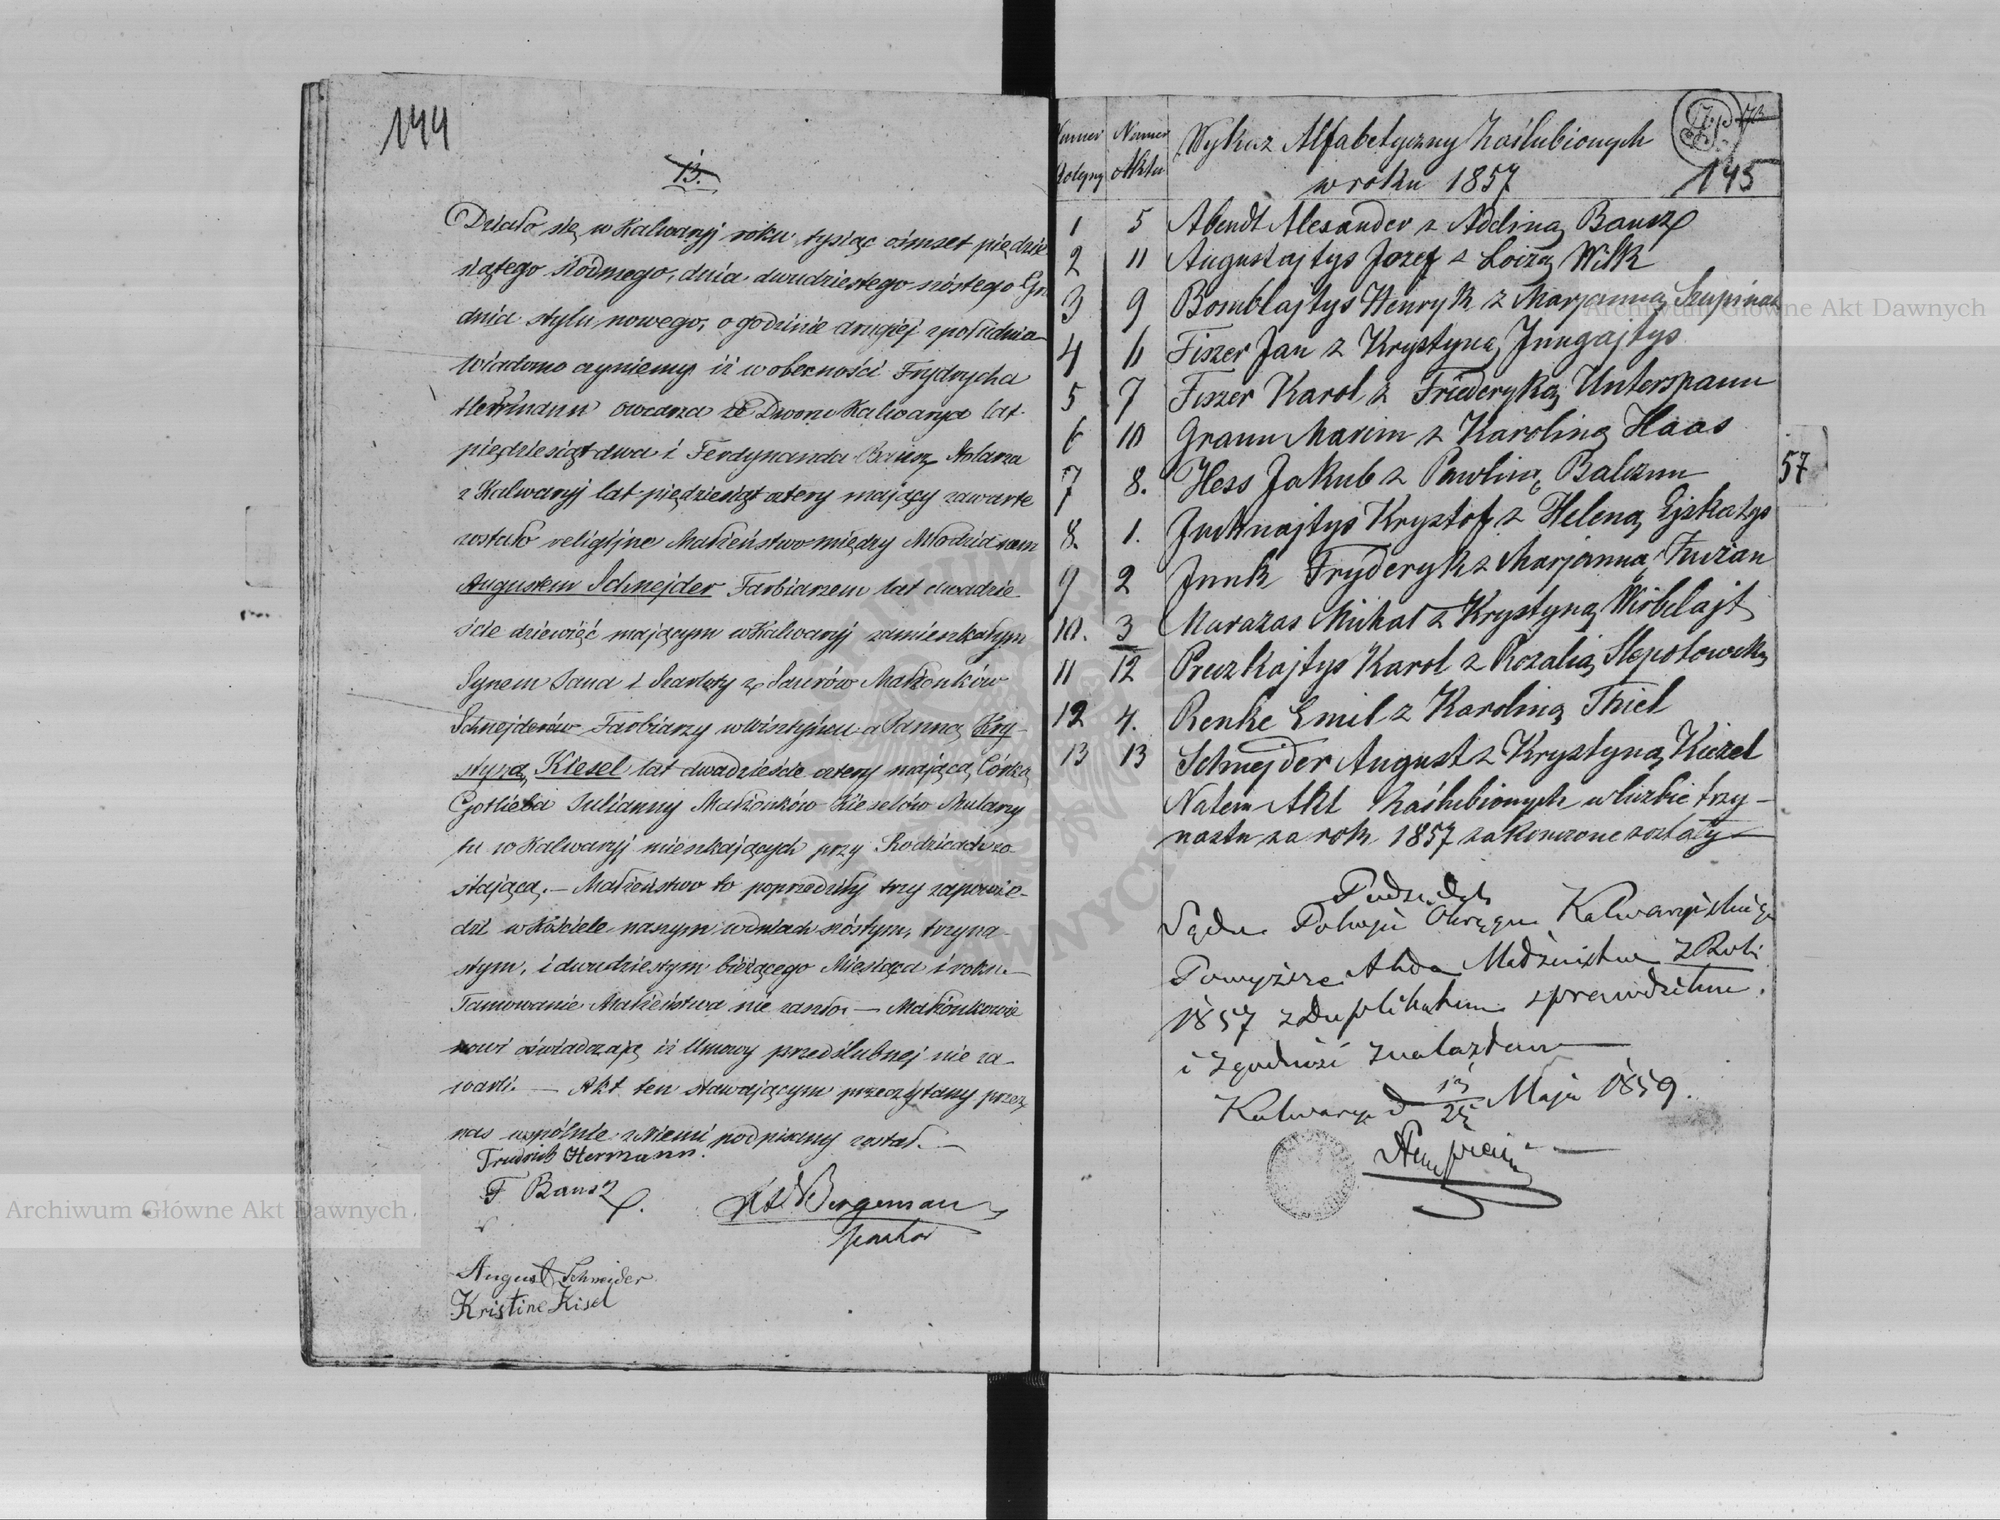 144
13.
Działo się w Kalwaryj roku tysiąc ośmset pięćdzie
siątego siódmego, dnia dwudziestego szóstego Gru
dnia stylu nowego, o godzinie drugiej z południa
Wiadomo czyniemy iż w obecności Frydrycha
Herrmann owczarza ze Dworu Kalwarya lat
pięćdziesiąt dwa i Ferdynanda Bausz Stolarza
z Kalwaryj lat pięćdziesiąt cztery mający zawarte
zostało religijne Małżeństwo między Młodzianem
Augustem Schnejder Farbiarzem lat dwadzie-
ście dziewięć mającym w Kalwaryj zamieszkałym
Synem Jana i Szarloty z Małżonków
Schnejderów Farbiarzy w Wisztyńcu a Panną Kry-
styną Kiesel lat dwadzieście cztery mającą Córką
Gotlieba Julianny Małżonków Kieselów Mularzy
tu w Kalwaryj mieszkających przy Rodzicach zo-
stającą. — Małżeństwo to poprzedziły trzy zapowie-
dzi w Kościele naszym w dniach szóstym, trzyna-
stym, i dwudziestym bieżącego Miesiąca i roku. —
Tamowanie Małżeństwa nie zaszło. — Małżonkowie
nowi oświadczają iż Umowy przedślubnej nie za-
warli. — Akt ten stawającym przeczytany przez
nas wspólnie z Niemi podpisany został. —
Friedrich Hermann.
F Bausz
Bergeman
pastor
August Schneider
Kristine Kisel
Numer Numer Wykaz Alfabetyczny Zaślubionych
Aktu w roku 1857
145
1 5 Abendt Alexander z Adeliną Bausz
2 11 Augustajtys Jozef z Loizą Wilk
3 9 Bomblajtys Henryk z Marjanną
4 6 Fiszer Jan z Krystyną Jungajtys
5 7 Fiszer Karol z Friederyką Unterspann
6 10 Grann Marcin z Karoliną Haas
7 8. Hess Jakub z Pawliną Balczun
8. 1. Krysztof z Heleną
9 2 Junk Fryderyk z Marjanną
10. 3 Marazas Michał z Krystyną Wirbelajt
11 12 Preuzkajtys Karol z Rozalią
12 4. Renke Emil z Karoliną Thiel
13 13 Schnejder August z Krystyną Kiezel
Natem Akt Zaślubionych w liczbie trzy-
nastu za rok 1857 zakończone zostały —
57
Podsędek
Sądu Pokoju Okręgu Kalwaryjskiego
Powyższe Akta Małżeństw z Roku
1857 z duplikatem sprawdziłem
i zgodność znalazłem —
Kalwarya d 13/25 Maja 1859.
Archiwum Główne Akt Dawnych
Archiwum Główne Akt Dawnych